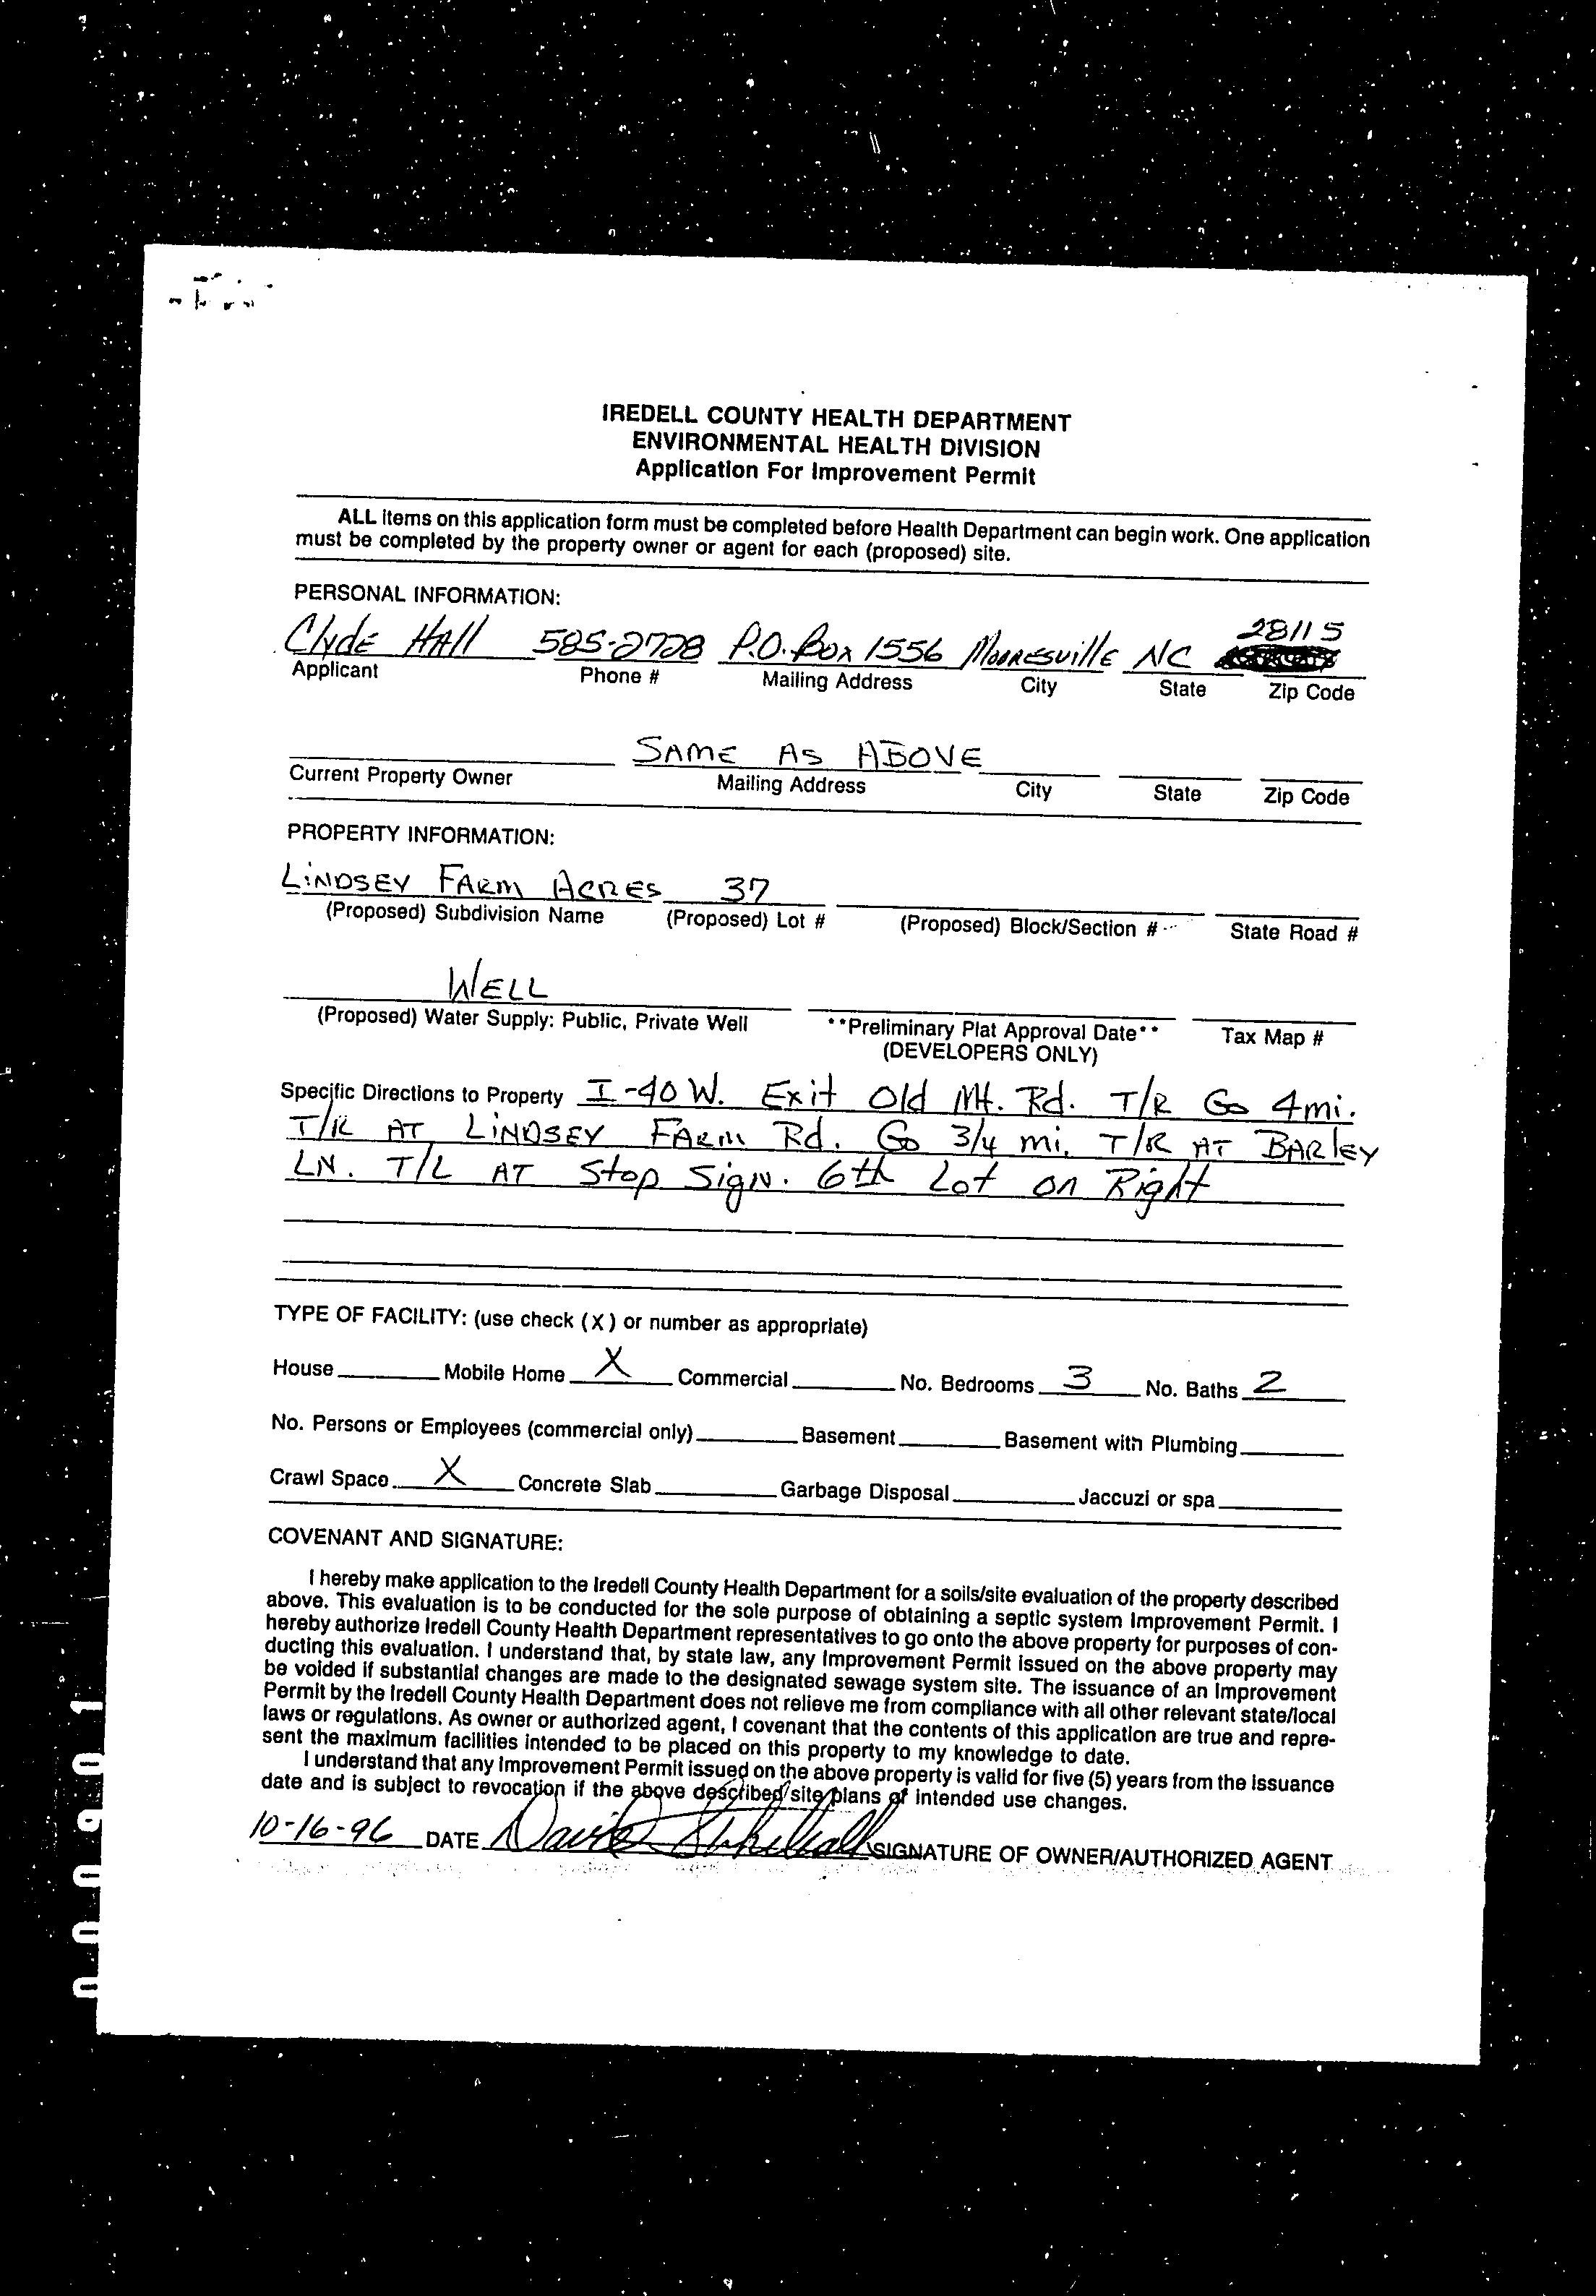 IREDELL COUNTY HEALTH DEPARTMENT
ENVIRONMENTAL HEALTH DIVISION
Application For Improvement Permit
ALL items on this application form must be completed before Health Department can begin work. One application
must be completed by the property owner or agent for each (proposed) site.
PERSONAL INFORMATION:
28115
Clyde Hall 585-2728 P.O. Box 1556 Mooresville NC
Applicant Phone # Mailing Address City State Zip Code
SAME AS ABOVE
Current Property Owner Mailing Address City State Zip Code
PROPERTY INFORMATION:
LINDSEY FARM ACRES 37
(Proposed) Subdivision Name (Proposed) Lot # (Proposed) Block/Section # State Road #
WELL
(Proposed) Water Supply: Public, Private Well **Preliminary Plat Approval Date** Tax Map #
(DEVELOPERS ONLY)
Specific Directions to Property I-40 W. Exit Old Mt. Rd. T/R Go 4 mi.
T/R AT LINDSEY FARM Rd. Go 3/4 mi. T/R AT BARLEY
LN. T/L AT Stop Sign. 6th Lot on Right
TYPE OF FACILITY: (use check (X) or number as appropriate)
House Mobile Home X Commercial No. Bedrooms 3 No. Baths 2
No. Persons or Employees (commercial only) Basement Basement with Plumbing
Crawl Space X Concrete Slab Garbage Disposal Jaccuzi or spa
COVENANT AND SIGNATURE:
I hereby make application to the Iredell County Health Department for a soils/site evaluation of the property described
above. This evaluation is to be conducted for the sole purpose of obtaining a septic system Improvement Permit. I
hereby authorize Iredell County Health Department representatives to go onto the above property for purposes of con-
ducting this evaluation. I understand that, by state law, any Improvement Permit issued on the above property may
be voided if substantial changes are made to the designated sewage system site. The issuance of an Improvement
Permit by the Iredell County Health Department does not relieve me from compliance with all other relevant state/local
laws or regulations. As owner or authorized agent, I covenant that the contents of this application are true and repre-
sent the maximum facilities intended to be placed on this property to my knowledge to date.
I understand that any Improvement Permit issued on the above property is valid for five (5) years from the issuance
date and is subject to revocation if the above described site plans of intended use changes.
10-16-96 DATE David SIGNATURE OF OWNER/AUTHORIZED AGENT